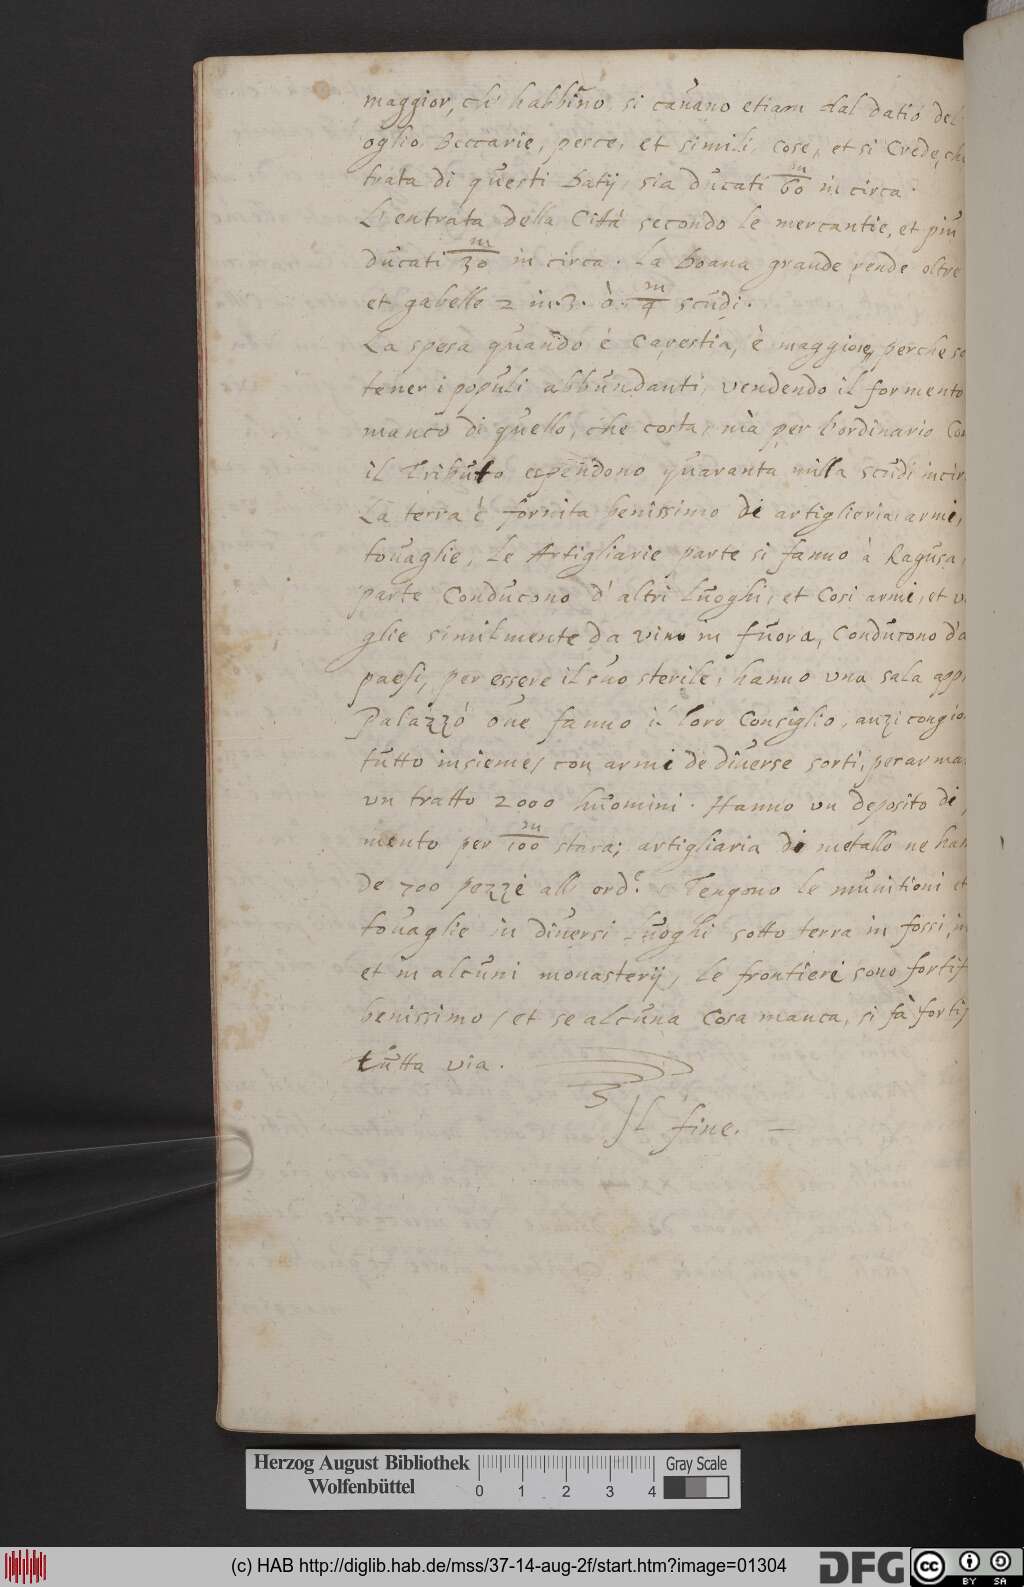 maggior, ch' habbino si cauano etiam dal datio del
oglio, Beccarie, pesce, et simili, cose, et si Crede, che
trata di questi Datij, sia ducati m/60 in circa.
L'entrata della Città secondo le mercantie, et più
ducati m/30 in circa. La Doana grande, rende oltre
et gabelle 2 in.3. ò m/4 scudi.
La spesa quando è Carestia, è maggiore, perche
tener i populi abbundanti, vendendo il formento
manco di quello, che costa, mà per l'ordinario
il Tributo espendono quaranta milla scudi in
La terra è fornita benissimo di artiglieria, armi,
touaglie, Le Artigliarie parte si fanno à Ragusa,
parte Conducono d'altri luoghi, et Cosi armi, et
glie similmente da vino in fuora, Conducono da
paesi, per essere il suo sterile, hanno una sala
Palazzo oue fanno il loro Consiglio, anzi
tutto insieme, con armi de diuerse sorti, per
un tratto 2000 huomini. Hanno un deposito di
mento per m/100 stara; artigliaria di metallo ne
de 700 pezzi all' ord.e Tengono le munitioni et
touaglie in diuersi luoghi sotto terra in fossi,
et in alcuni monasterij, le frontieri sono
benissimo, et se alcuna Cosa manca, si fà
tutta via.
Il fine.
Herzog August Bibliothek
Wolfenbüttel
0 1 2 3 4
Gray Scale
(c) HAB http://diglib.hab.de/mss/37-14-aug-2f/start.htm?image=01304
DFG
cc BY SA